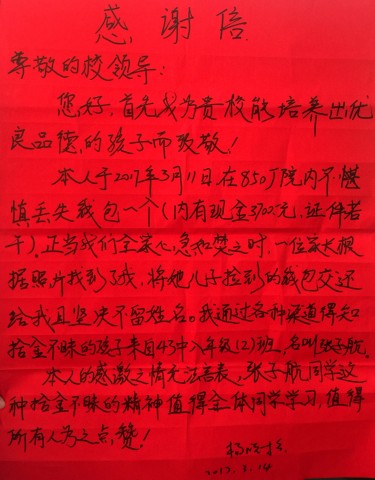 感谢信
尊敬的校领导:
您好,首先我为贵校能培养出优
良品德的孩子而致敬!
本人于2017年3月11日在850厂院内不慎
慎丢失钱包一个(内有现金3700元,证件若
干)。正当我们全家心急如焚之时,一位家长根
据照片找到了我,将她儿子捡到的钱包交还
给我且坚决不留姓名。我通过各种渠道得知
拾金不昧的孩子来自43中八年级(2)班,名叫张子航。
本人的感激之情无法言表,张子航同学这
种拾金不昧的精神值得全体同学学习,值得
所有人为之点赞!
2017.3.14